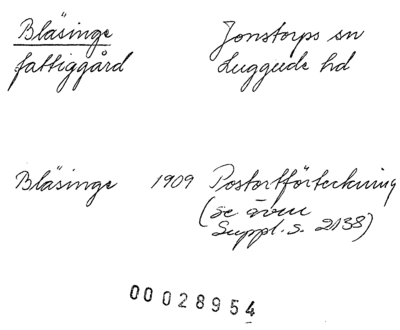 Bläsinge Jonstorps sn
fattiggård Luggude hd
Bläsinge 1909 Postortförteckning
(se även
Suppl. s. 2138)
00028954